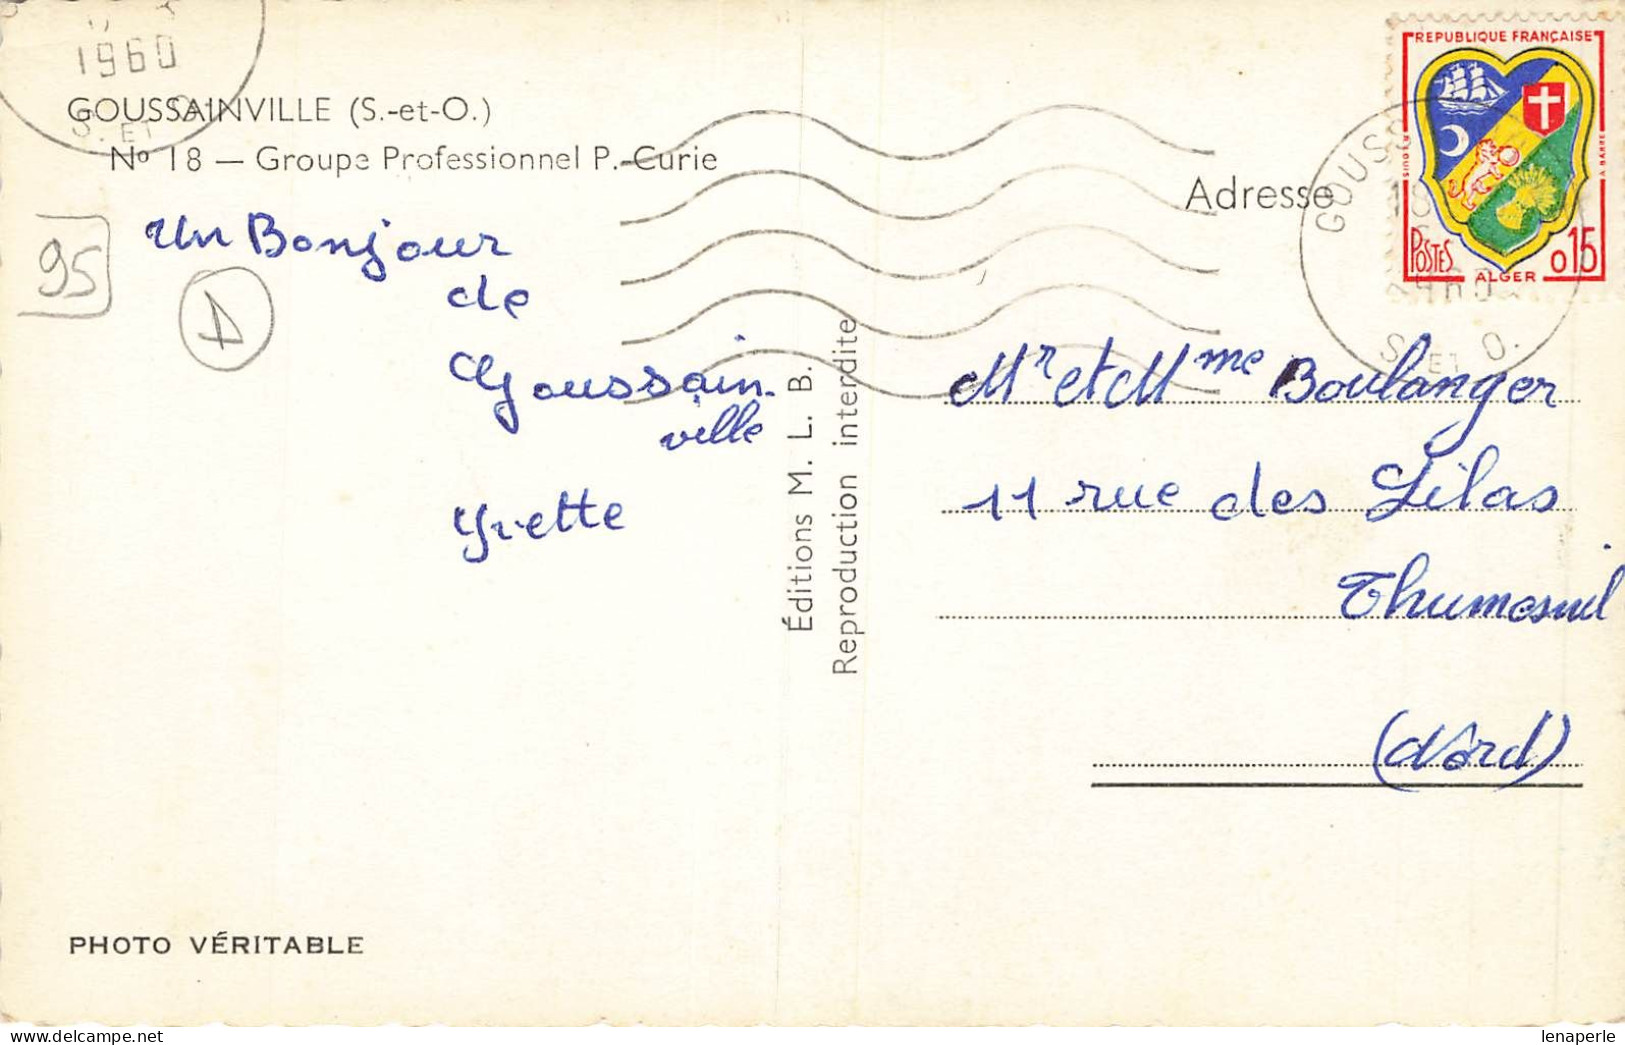 1960
S. ET O.
GOUSSAINVILLE (S.-et-O.)
No 18 — Groupe Professionnel P. Curie
95
A
Un Bonjour
de
Goussain-
ville
Yvette
PHOTO VÉRITABLE
Éditions M. L. B.
Reproduction interdite
REPUBLIQUE FRANÇAISE
POSTES
ALGER
0,15
GOUSS
18
1960
S. ET O.
Adresse
Mr et Mme Boulanger
11 rue des Lilas
Thumesnil
(Nord)
lenaperle